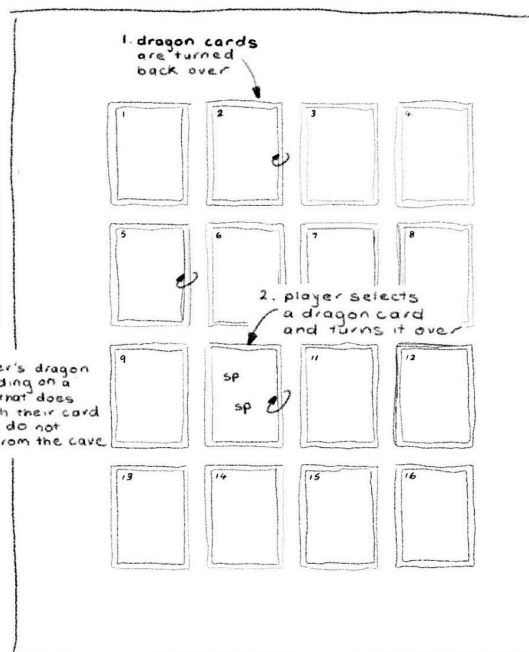 1. dragon cards
are turned
back over
1
2
3
4
5
6
7
8
2. player selects
a dragon card
and turns it over
9
sp
sp
11
12
er's dragon
ding on a
that does
h their card
do not
from the cave
13
14
15
16